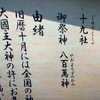 十九社
御祭神 八百萬神
由緒
旧暦十月には全国の神
大國主大神の許にお